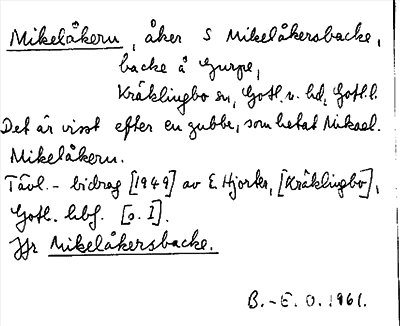 Mikelåkern, åker S Mikelåkersbacke,
backe å Gurpe,
Kräklingbo sn, Gotl. n. hd, Gotl. l.
Det är visst efter en gubbe, som hetat Mikael.
Mikelåkern.
Tävl.-bidrag [1949] av E. Hjorter, [Kräklingbo],
Gotl. hbf. [o. I].
Jfr Mikelåkersbacke.
B.-E. O. 1961.